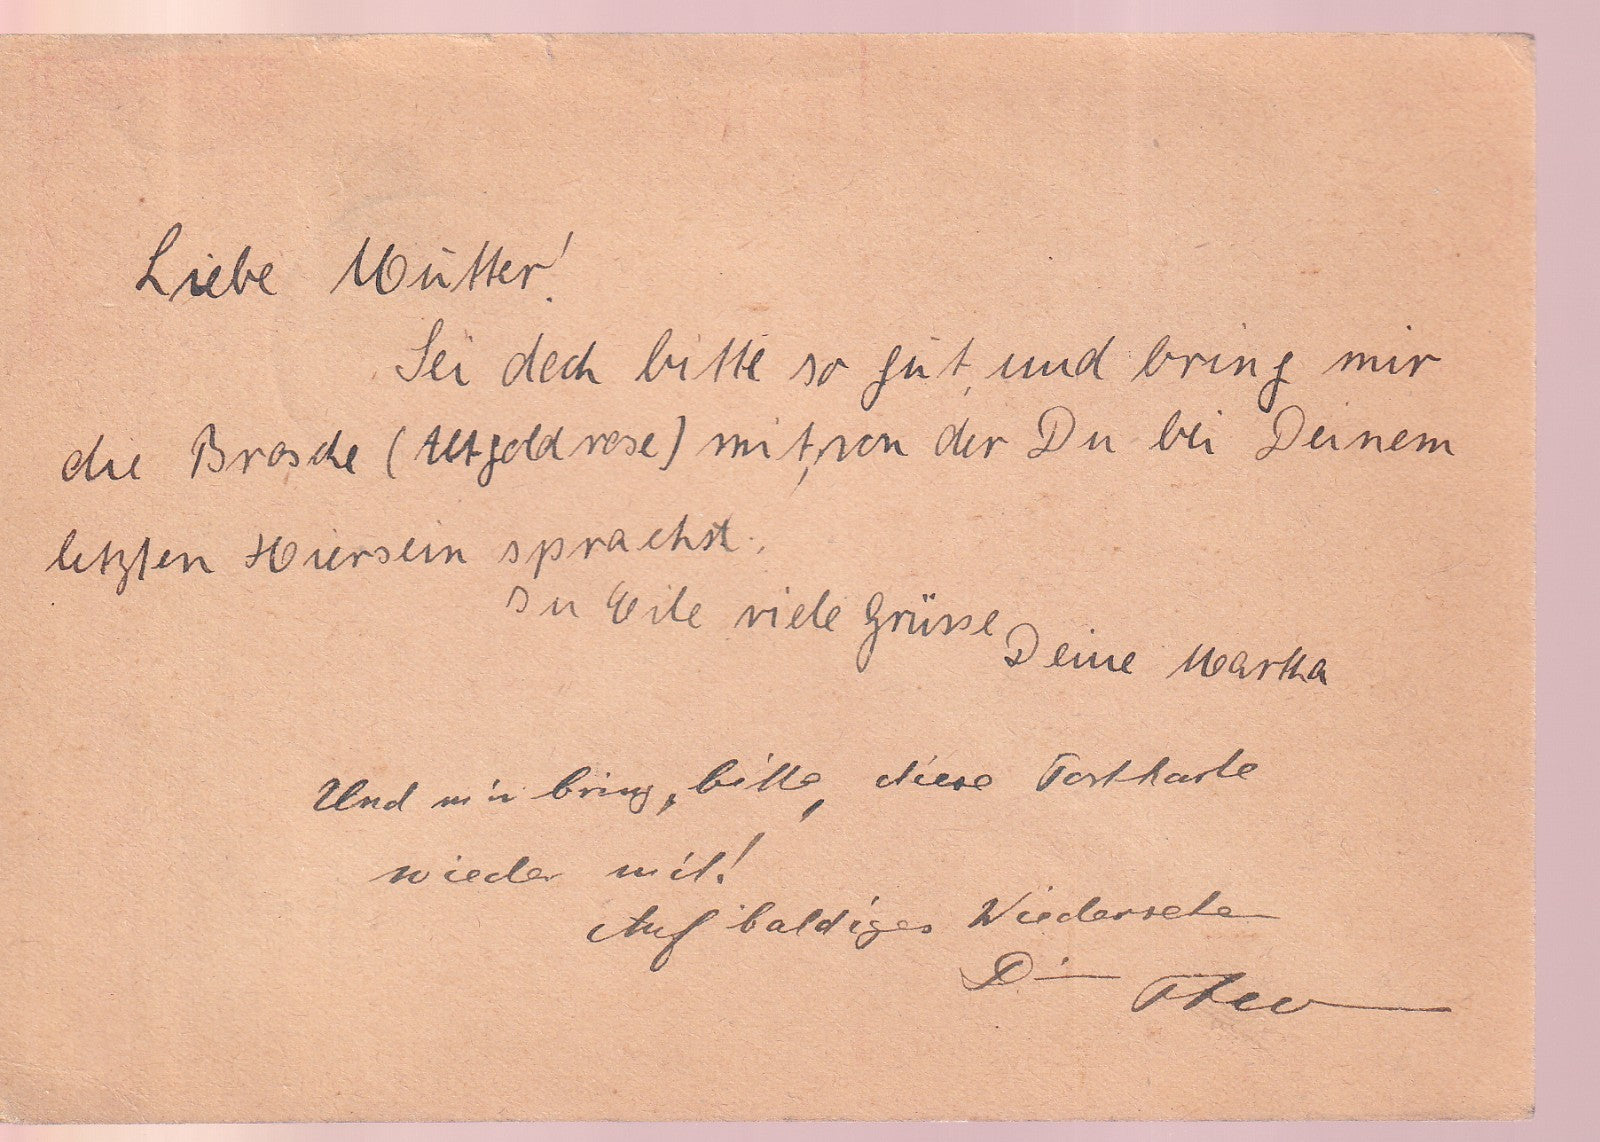 Liebe Mutter!
Sei doch bitte so gut, und bring mir
die Brosche (Altgoldrose) mit, von der Du bei Deinem
letzten Hiersein sprachst.
In Eile viele Grüsse
Deine Martha
Und mir bring, bitte, diese Postkarte
wieder mit!
Auf baldiges Wiedersehen
Dein Theo